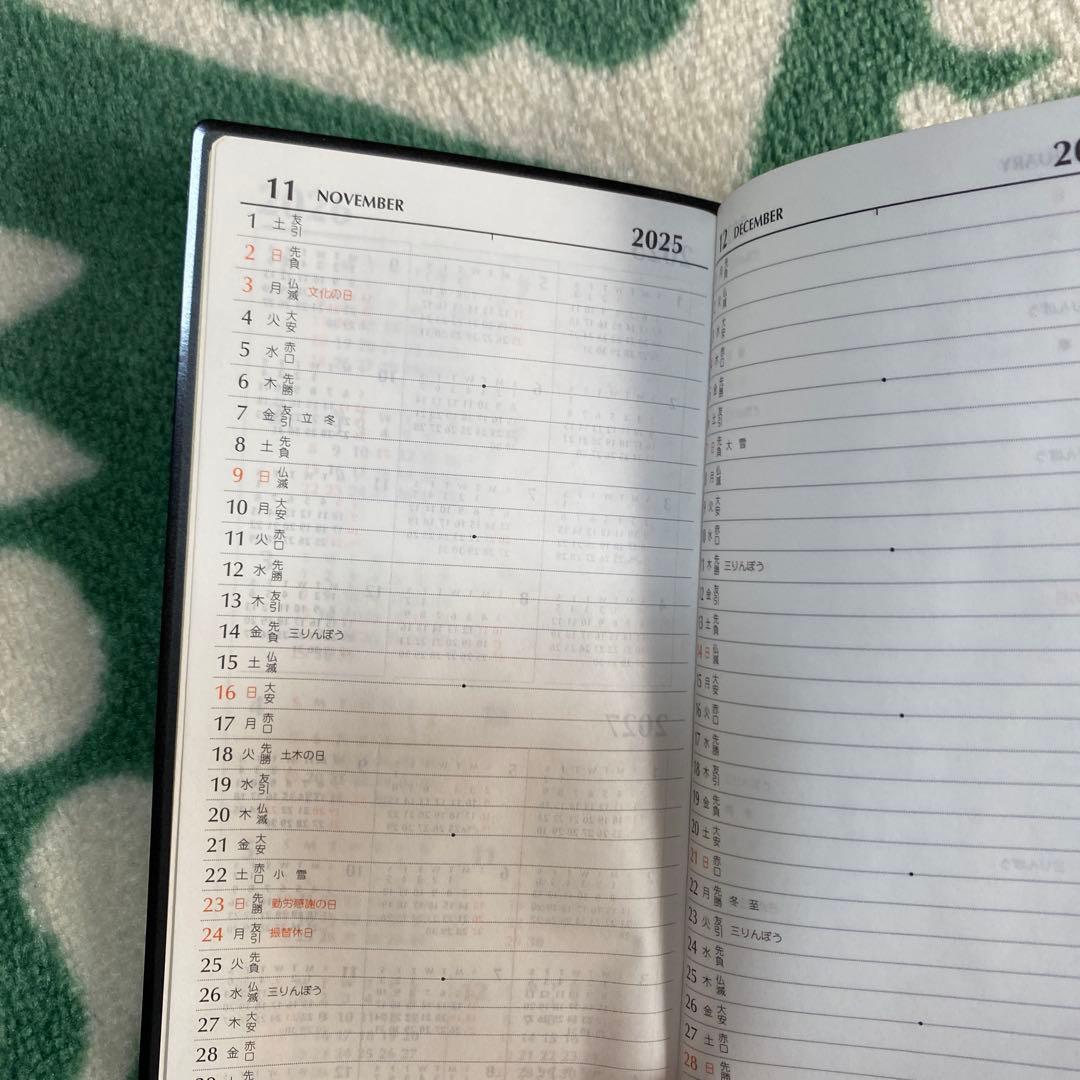 11 NOVEMBER 2025
1 土 友引
2 日 先負
3 月 仏滅 文化の日
4 火 大安
5 水 赤口
6 木 先勝
7 金 友引 立冬
8 土 先負
9 日 仏滅
10 月 大安
11 火 赤口
12 水 先勝
13 木 友引
14 金 先負 三りんぼう
15 土 仏滅
16 日 大安
17 月 赤口
18 火 先勝 土木の日
19 水 友引
20 木 仏滅
21 金 大安
22 土 赤口 小雪
23 日 先勝 勤労感謝の日
24 月 友引 振替休日
25 火 先負
26 水 仏滅 三りんぼう
27 木 大安
28 金 赤口
12 DECEMBER
月 先負
火 仏滅
水 大安
木 赤口
金 先勝
土 友引
日 先負 大雪
8 月 仏滅
9 火 大安
10 水 赤口
11 木 先勝 三りんぼう
12 金 友引
13 土 先負
14 日 仏滅
15 月 大安
16 火 赤口
17 水 先勝
18 木 友引
19 金 先負
20 土 大安
21 日 赤口
22 月 先勝 冬至
23 火 友引 三りんぼう
24 水 先負
25 木 仏滅
26 金 大安
27 土 赤口
28 日 先勝